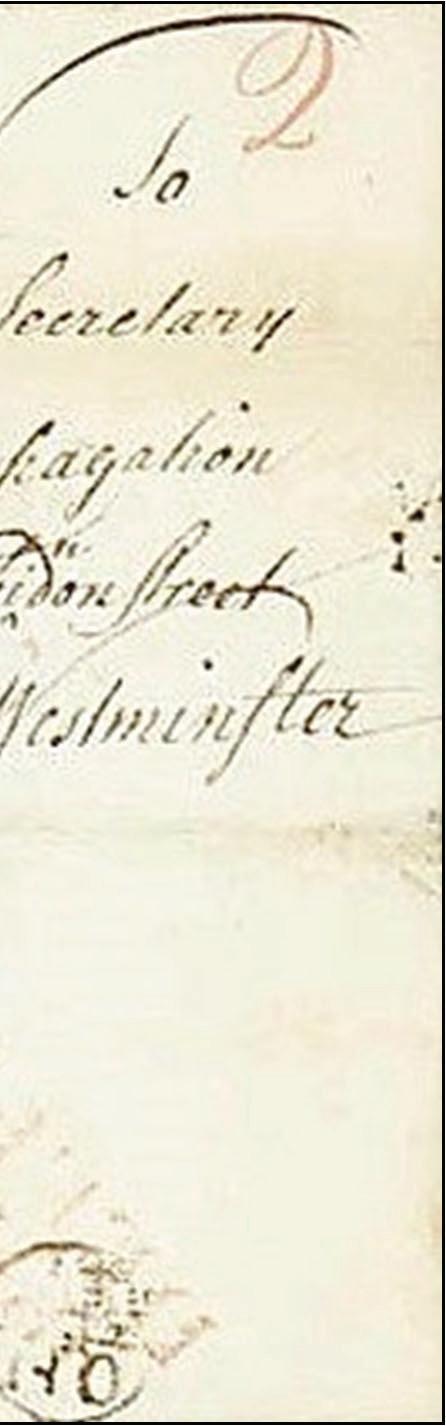 2
To
Secretary
pagation
n
idon Street
Westminster